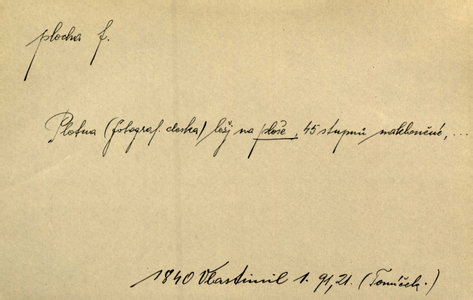 plocha f.
Plotna (fotograf. deska) leží na ploše, 45 stupňů nakloněné, ...
1840 Vlastimil 1. 91, 21. (Tomíček.)